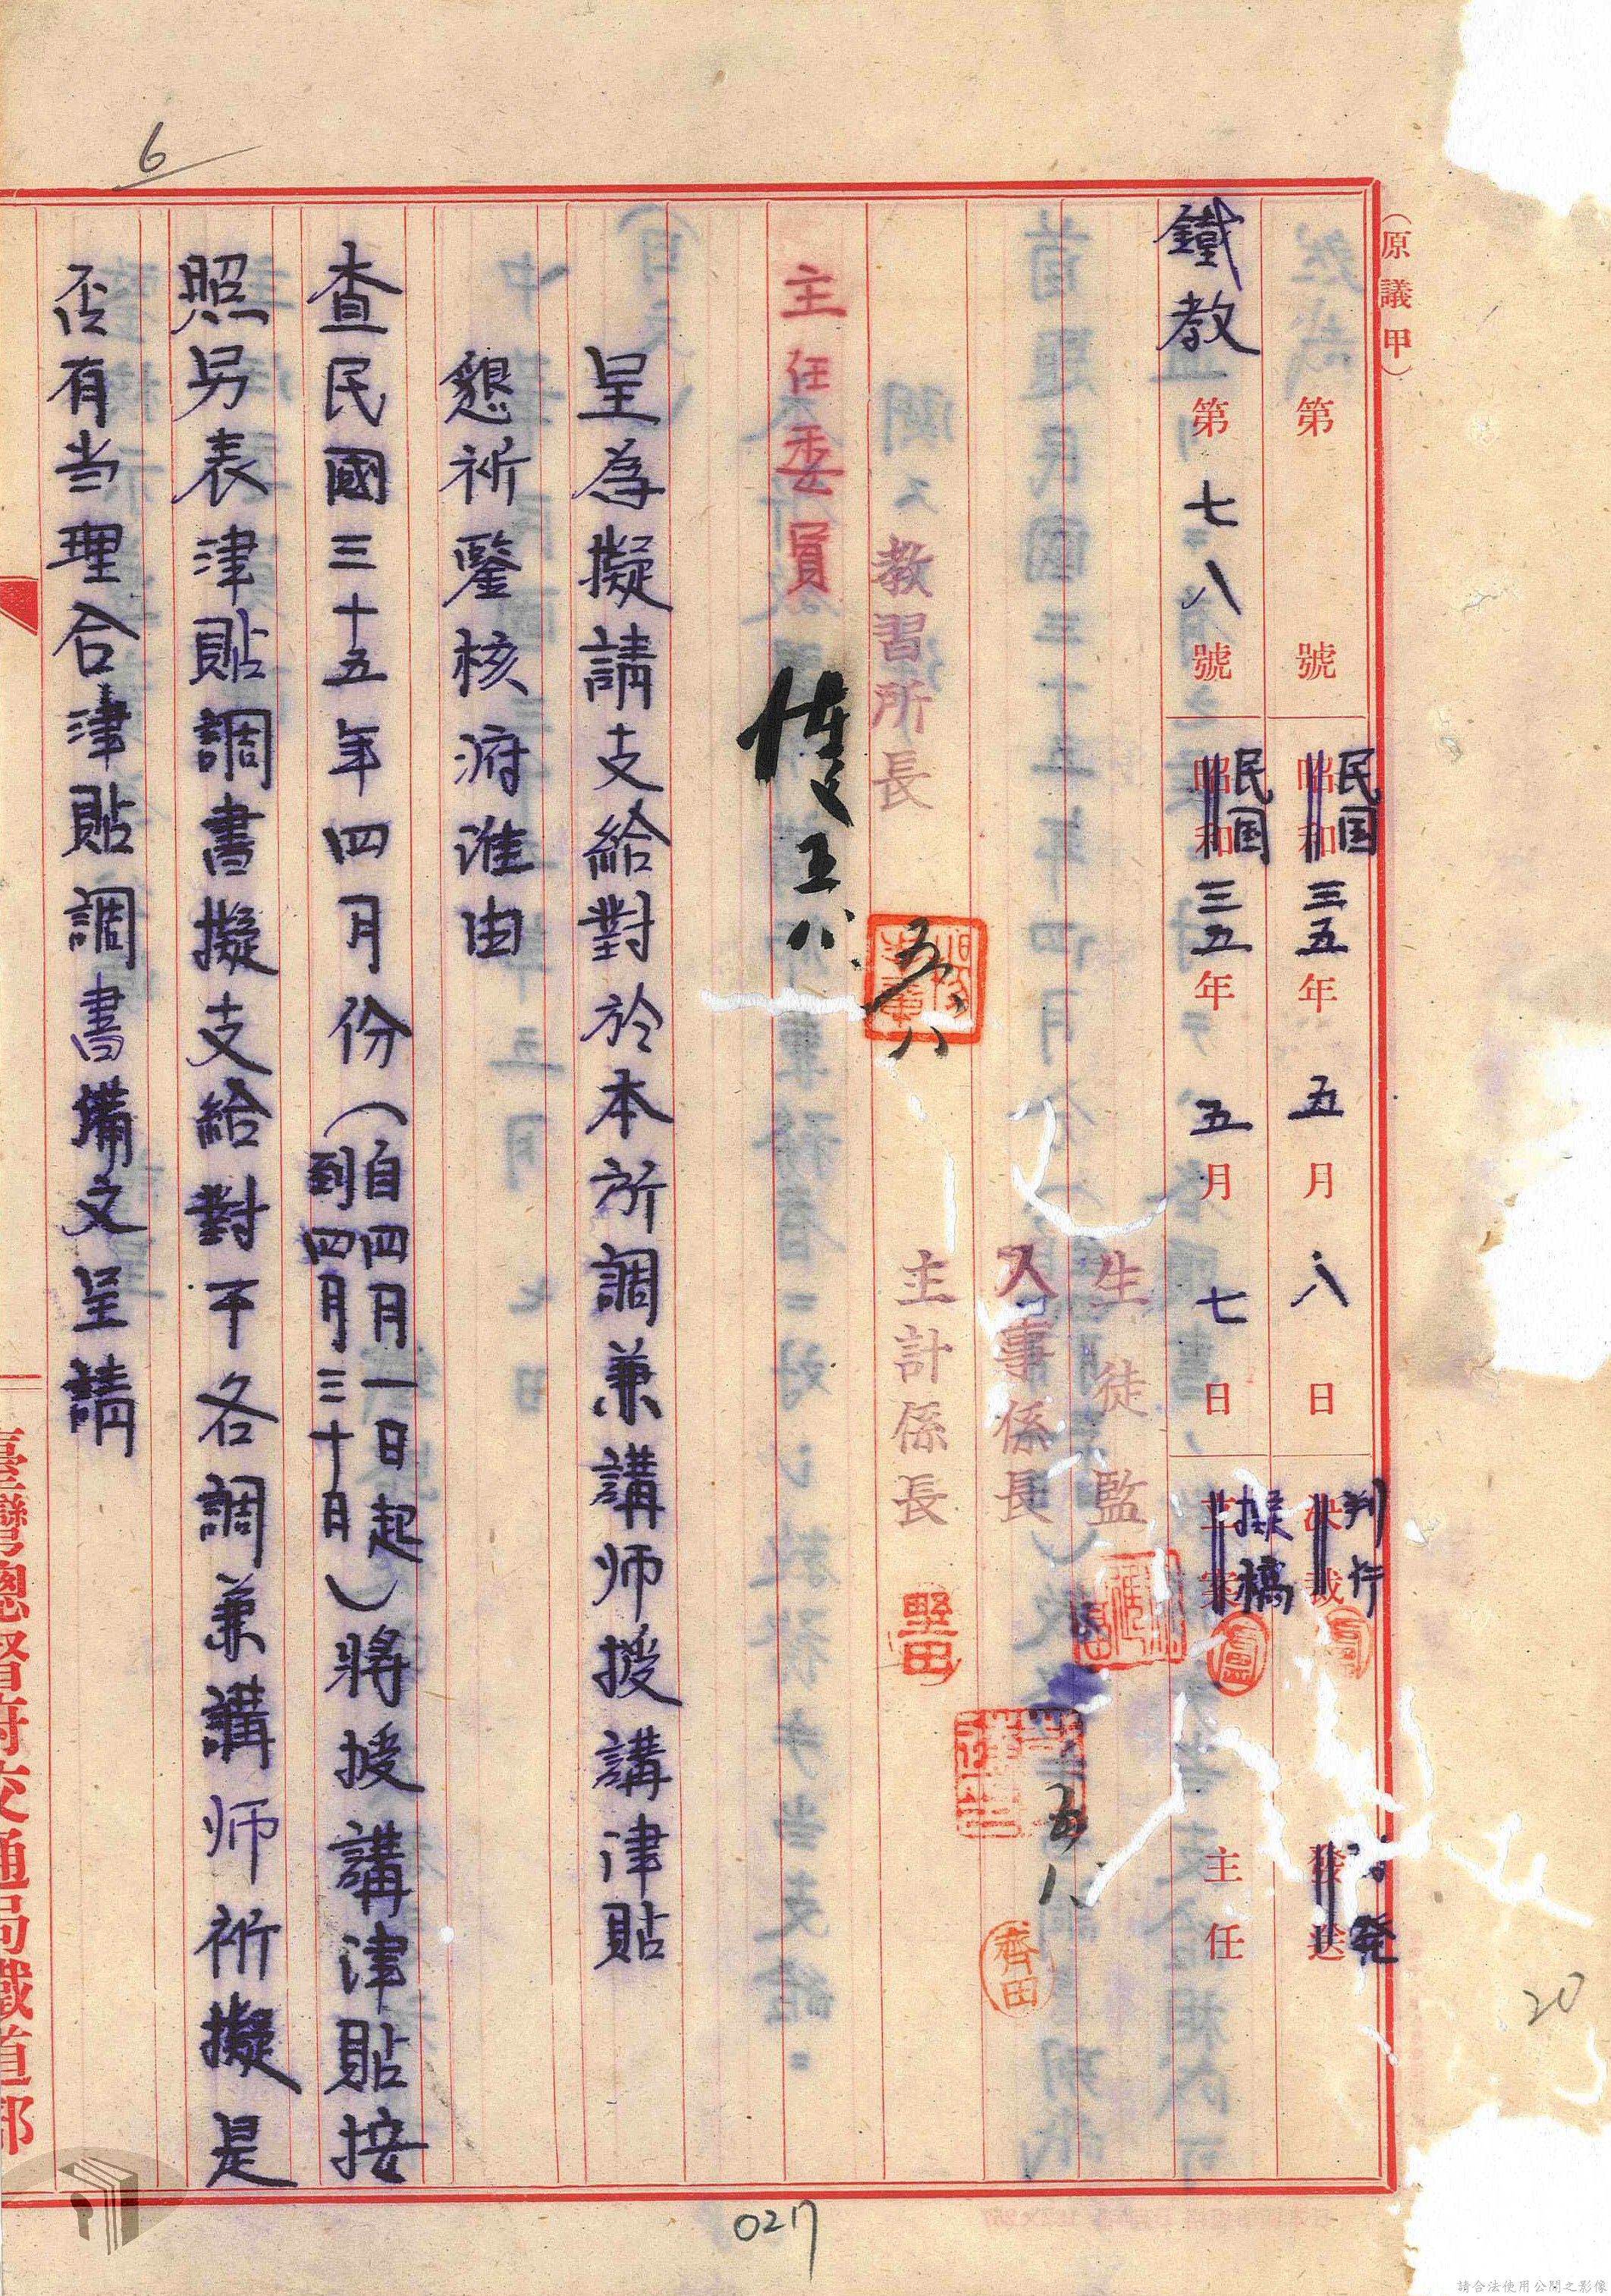 6
（原議甲）
第 號 昭和 民国 三五年 五月八日 決裁 判行 發送 発
鐵教 第七八號 昭和 民国 三五年 五月七日 立案 擬稿 主任
生徒監
人事係長 五八 齊田
主計係長 豐田
教習所長 五八
主任委員 五八
呈為擬請支給對於本所調兼講师授講津貼
懇祈鑒核府准由
查民國三十五年四月份（自四月一日起
到四月三十日）將授講津貼按
照另表津貼調書擬支給對于各調兼講师祈擬是
否有当理合津貼調書備文呈請
臺灣總督府交通局鐵道部
20
027
請合法使用公開之影像